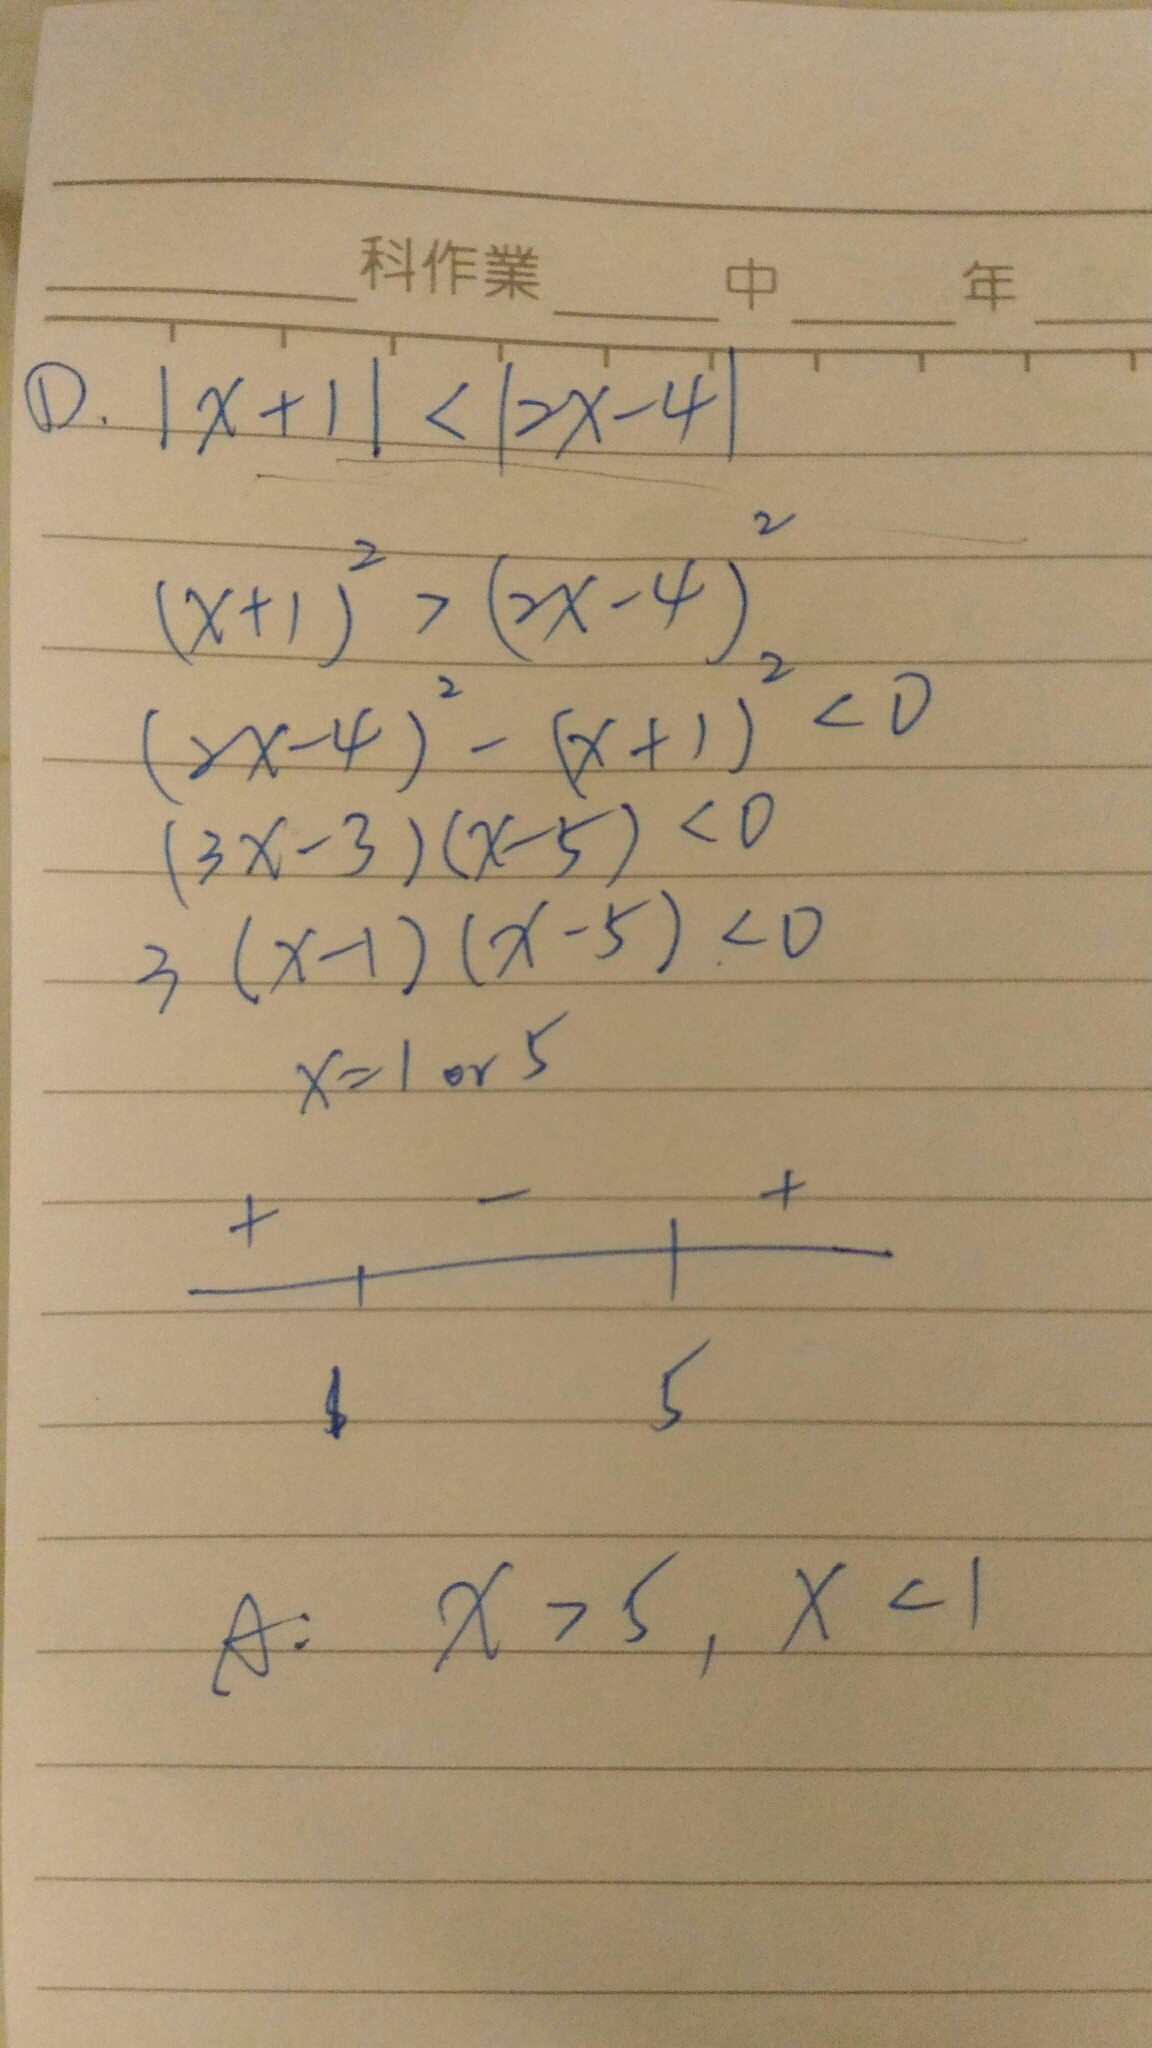 科作業 中 年
D. |x+1| < |2x-4|
(x+1)² > (2x-4)²
(2x-4)² - (x+1)² < 0
(3x-3)(x-5) < 0
3 (x-1)(x-5) < 0
x=1 or 5
+ - +
1 5
A: x > 5, x < 1